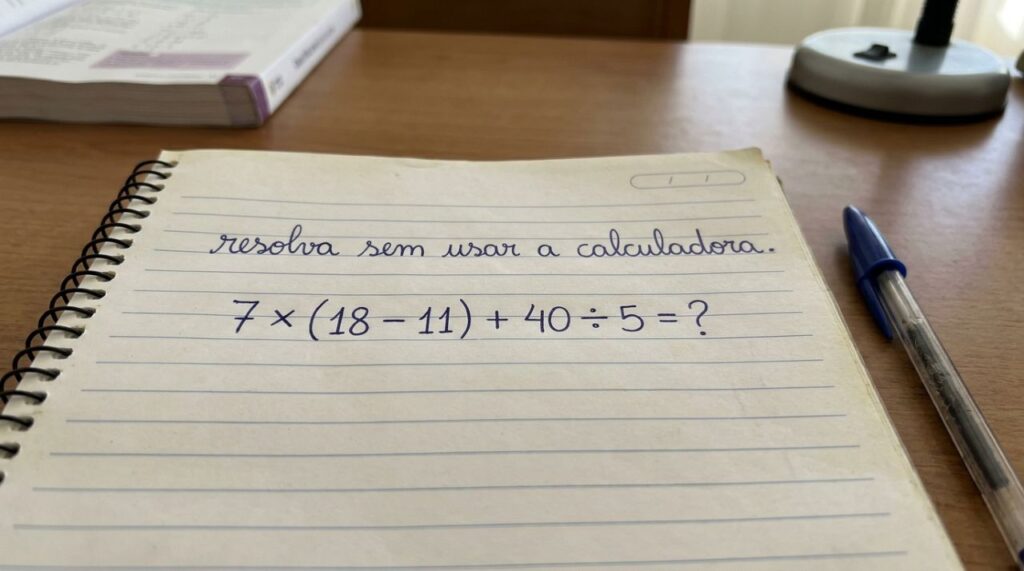 resolva sem usar a calculadora.
7 × (18 − 11) + 40 ÷ 5 = ?